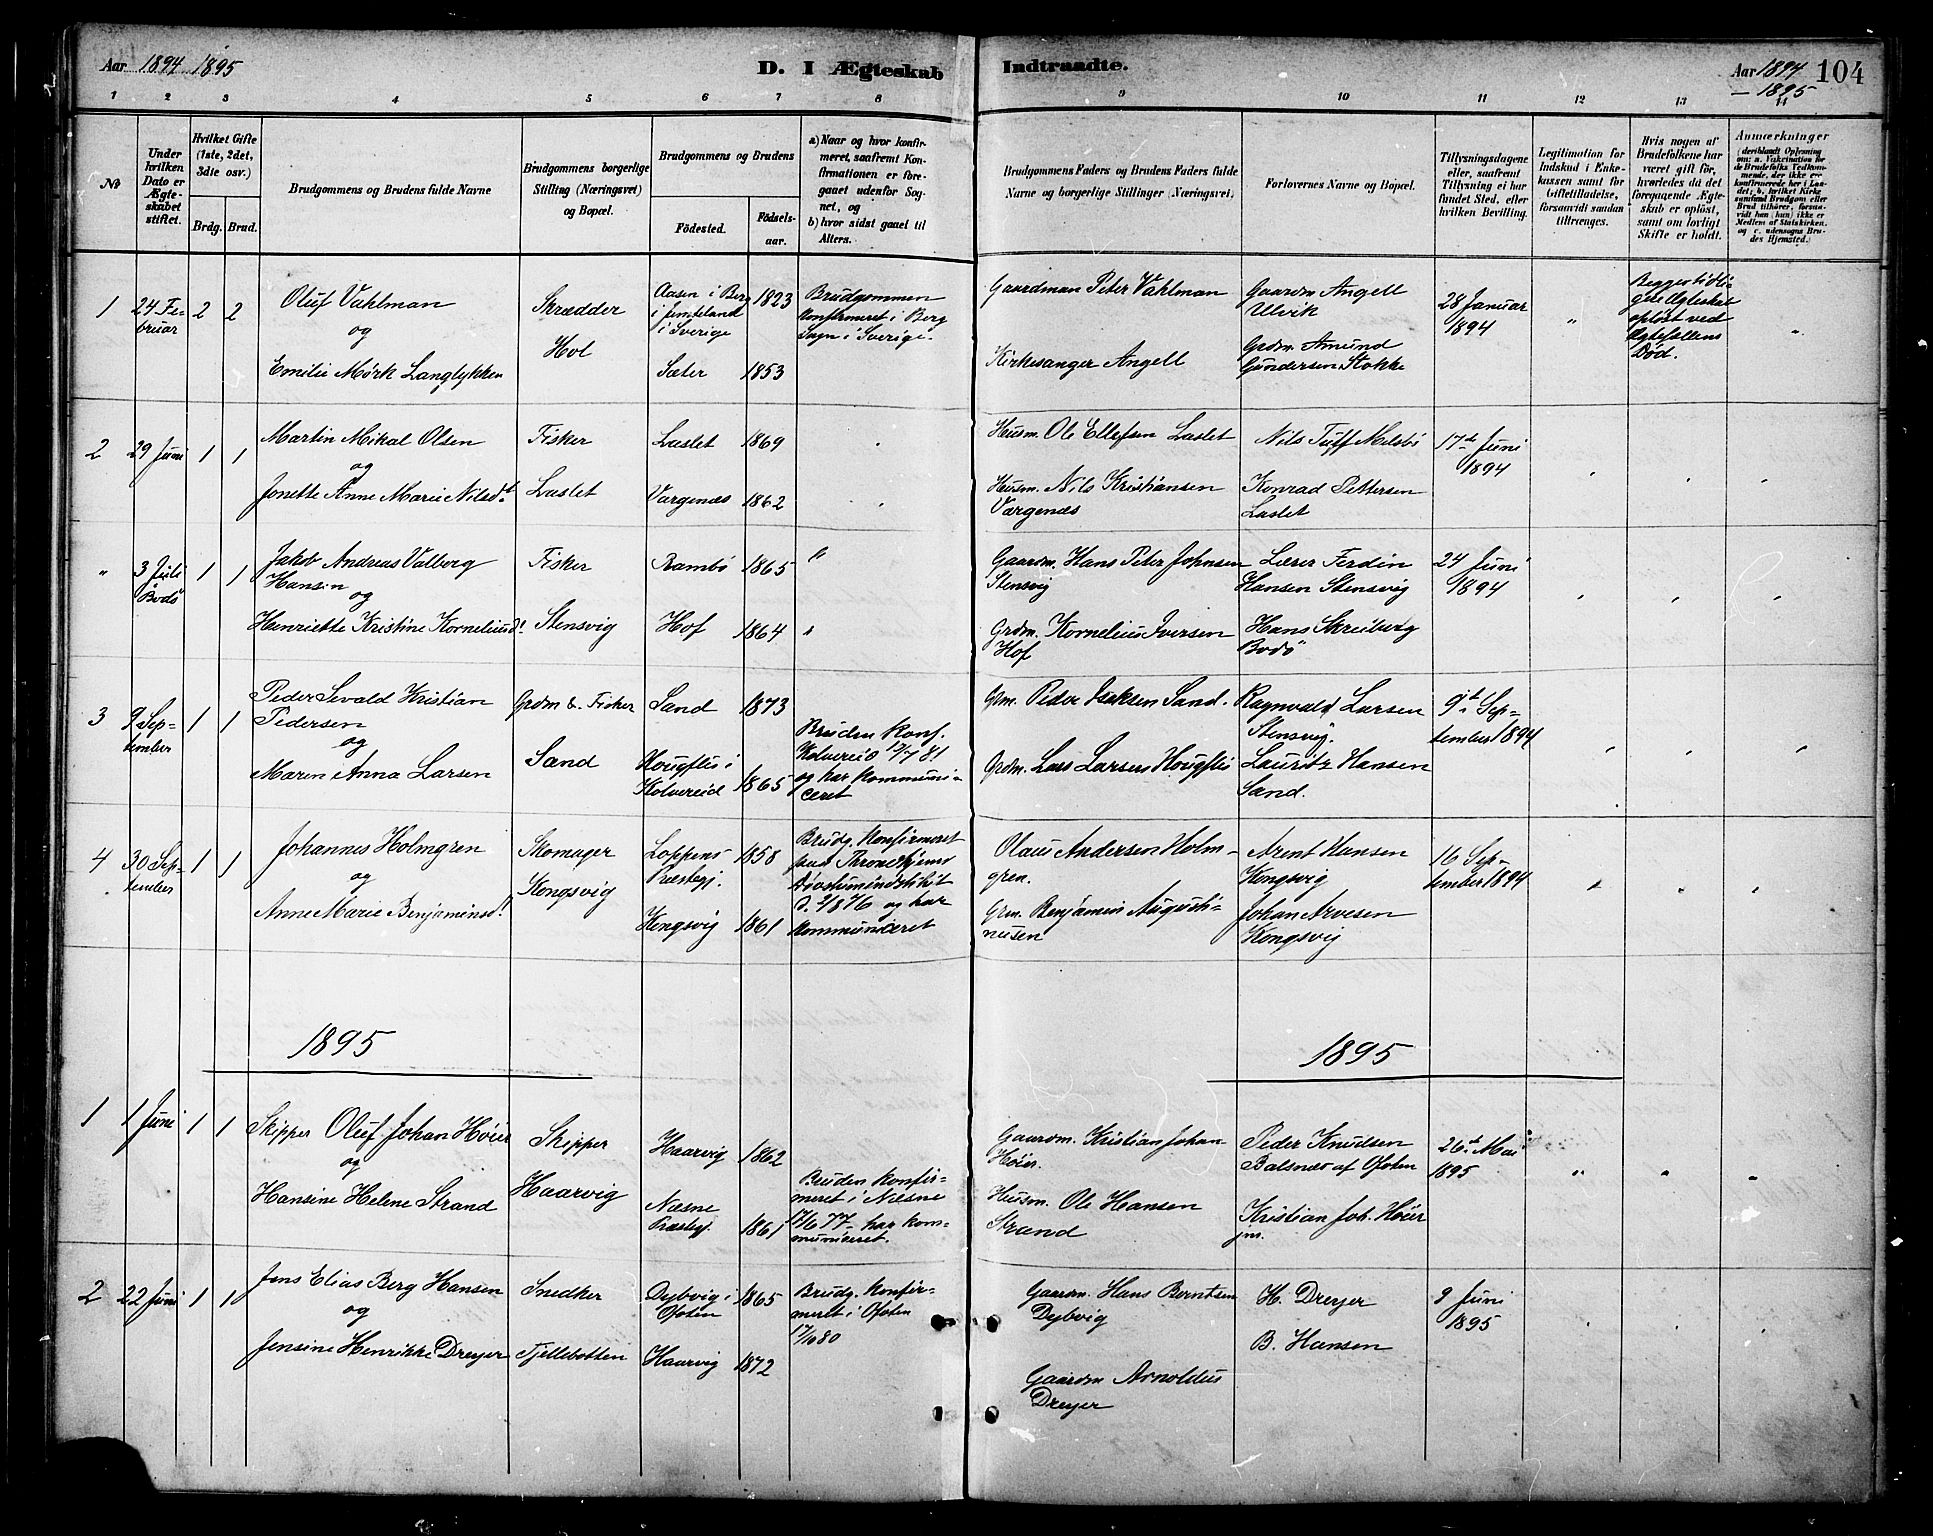 Aar 1894 1895
D. I Ægteskab
Indtraadte.
Aar 1894
– 1895
104
1 2 3 4 5 6 7 8 9 10 11 12 13 14
No
Under
hvilken
Dato er
Ægte-
skabet
stiftet.
Hvilket Gifte
(1ste, 2det,
3die osv.)
Brdg. Brud.
Brudgommens og Brudens fulde Navne
Brudgommens borgerlige
Stilling (Næringsvei)
og Bopæl.
Brudgommens og Brudens
Fødested.
Fødsels-
aar.
a) Naar og hvor konfir-
meret, saafremt Kon-
firmationen er fore-
gaaet udenfor Sog-
net, og
b) hvor sidst gaaet til
Alters.
Brudgommens Faders og Brudens Faders fulde
Navne og borgerlige Stillinger (Næringsvei)
Forlovernes Navne og Bopæl.
Tillysningsdagene
eller, saafremt
Tillysning ei har
fundet Sted, efter
hvilken Bevilling.
Legitimation for
Indskud i Enke-
kassen samt for
Giftetilladelse,
forsaavidt saadan
tiltrænges.
Hvis nogen af
Brudefolkene har
været gift før,
hvorledes da det
foregaaende Ægte-
skab er opløst,
samt om lovligt
Skifte er holdt.
Anmærkninger
(deriblandt Oplysning
om: a. Vakcination for
de Brudefolks Vedkom-
mende, der ikke er
konfirmerede her i Lan-
det; b. hvilket Kirke-
samfund Brudgom eller
Brud tilhører, forsaa-
vidt han (hun) ikke er
Medlem af Statskirken,
og c. udensogns Bru-
des Hjemsted.)
1 24 Fe-
bruar
2 2
Oluf Vahlman
og
Emilie Mørk Langlykken
Skrædder
Hol
Aasen i Berg
i Jemteland
i Sverige
1823
Sæter 1853
Brudgommen
konfirmeret i Berg
Sogn i Sverige.
Gaardman Peter Vahlman
Kirkesanger Angell
Gaardm Angell
Ulvik
Grdm. Amund
Gundersen Stokke
28 Januar
1894
"
Begges tidli-
gere Ægteskab
opløst ved
Ægtefællens
Død.
"
2 29 Juni 1 1
Martin Mikal Olsen
og
Jonette Anne Marie Nilsd.t
Fisker
Laslet
Laslet 1869
Vargenæs 1862
Husm. Ole Ellefsen Laslet
Husm. Nils Kristiansen
Vargenæs
Nils Tuff
Konrad Pettersen
Laslet
17de Juni
1894
" 3 Juli
Bodø
1 1
Jakob Andreas Valberg
Hansen
og
Henriette Kristine Korneliusd.
Fisker
Stensvig
Rambø 1865 "
Hof 1864 "
Gaardm. Hans Peter Johnsen
Stensvig
Grdm. Kornelius Iversen
Hof
Lærer Ferdin
Hansen Stensvig
Hans Skreiberg
Bodø
24 Juni
1894
3 9 Sep-
tember
1 1
Peder Sevald Kristian
Pedersen
og
Maren Anna Larsen
Grdm & Fisker
Sand
Sand 1873
Hougflis i
Kolvereid 1865
Bruden konf.
Kolvereid 17/7 81
og har kommuni-
ceret
Grdm. Peder Isaksen Sand.
Grdm. Lars Larsen Hougflis
Ragnvald Larsen
Stensvig.
Lauritz Hansen
Sand.
9de Sep-
tember 1894
4 30 Sep-
tember
1 1
Johannes Holmgren
og
Anne Marie Benjaminsd.
Skomager
Kongsvig
Loppens
Præstegj. 1858
Kongsvig 1861
Brudg. konfirmeret
paa Throndhjems
Døvstumindstitut
D. 2/8 76 og har
kommuniceret
Olaus Andersen Holm-
gren.
Grm. Benjamin Augusti-
nusen
Arent Hansen
Kongsvig
Johan Arvesen
Kongsvig
16 Sep-
tember 1894
1895
1895
1 1 Juni 1 1
Skipper Oluf Johan Høier
og
Hansine Helene Strand
Skipper
Haarvig
Haarvig 1862
Næsne
Præstegj. 1861
Bruden konfir-
meret i Næsne
17/6 77 – har kom-
municeret.
Gaardm. Kristian Johan
Høier.
Husm. Ole Hansen
Strand
Peder Knudsen
Balsnæs af Ofoten
Kristian Joh. Høier
jm.
26de Mai
1895
2 22 Juni 1 1
Jens Elias Berg Hansen
og
Jensine Henrikke Dreyer
Snedker
Fjellebotten
Dybvig i
Ofoten 1865
Haarvig 1872
Brudg. konfir-
meret i Ofoten
17/10 80
Gaardm. Hans Berntsen
Dybvig
Gaardm Arnoldus
Dreyer
H. Dreyer
B. Hansen
9 Juni
1895